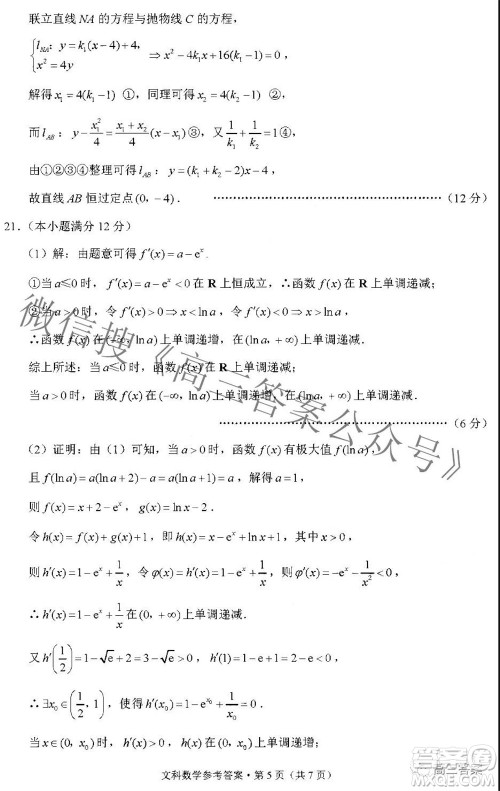 联立直线 NA 的方程与抛物线 C 的方程，
{l_{NA}：y=k₁(x−4)+4，
x²=4y ⇒x²−4k₁x+16(k₁−1)=0，
解得 x₁=4(k₁−1) ①，同理可得 x₂=4(k₂−1) ②，
而 l_{AB}：y−x₁²/4=(x₁+x₂)/4(x−x₁)③，又 1/k₁+1/k₂=1④，
由①②③④整理可得 l_{AB}：y=(k₁+k₂−2)x−4，
故直线 AB 恒过定点(0，−4)． ……………………………………（12 分）
21．（本小题满分 12 分）
（1）解：由题意可得 f′(x)=a−eˣ．
①当 a≤0 时，f′(x)=a−eˣ<0 在 R 上恒成立，∴函数 f(x) 在 R 上单调递减；
②当 a>0 时，令 f′(x)>0⇒x<ln a，令 f′(x)<0⇒x>ln a，
∴函数 f(x) 在(−∞，ln a)上单调递增，在(ln a，+∞)上单调递减．
综上所述：当 a≤0 时，函数 f(x) 在 R 上单调递减；
当 a>0 时，函数 f(x) 在(−∞，ln a)上单调递增，在(ln a，+∞)上单调递减．
……………………………………（6 分）
（2）证明：由（1）可知，当 a>0 时，函数 f(x) 有极大值 f(ln a)，
且 f(ln a)=a ln a+1−a+a=1，解得 a=1，
则 f(x)=x+2−eˣ，g(x)=ln x−2．
令 h(x)=f(x)+g(x)+1，即 h(x)=x−eˣ+ln x+1，其中 x>0，
则 h′(x)=1−eˣ+1/x，令 φ(x)=h′(x)=1−eˣ+1/x，则 φ′(x)=−eˣ−1/x²<0，
∴h′(x)=1−eˣ+1/x 在(0，+∞)上单调递减．
又 h′(1/2)=1−√e+2=3−√e>0，h′(1)=1−e+1=2−e<0，
∴∃x₀∈(1/2，1)，使得 h′(x₀)=1−e^{x₀}+1/x₀=0，
当 x∈(0，x₀)时，h′(x)>0，函数 h(x) 单调递增；
文科数学参考答案・第 5 页（共 7 页）
微信搜《高三答案公众号》
高三答案